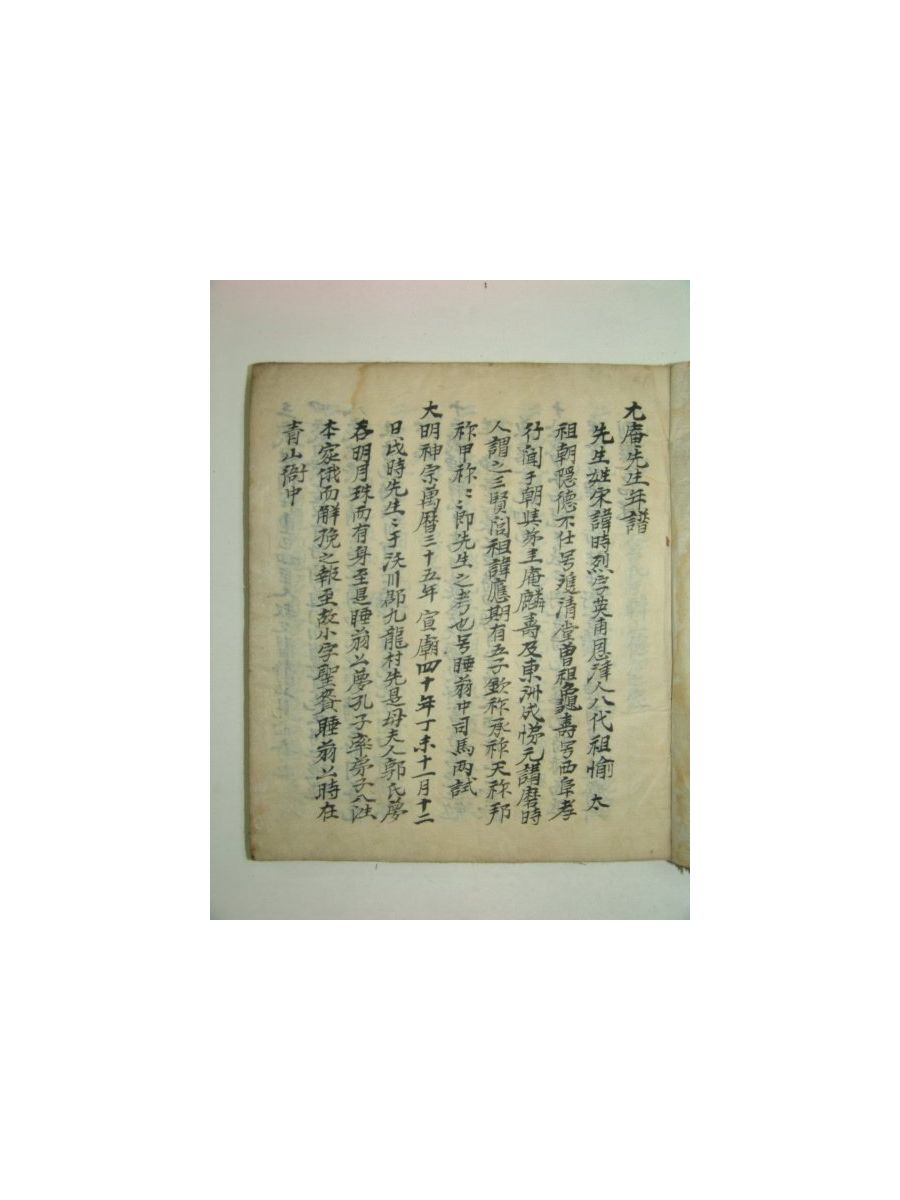 尤庵先生年譜
先生姓宋諱時烈字英甫恩津人八代祖愉 太
祖朝隱德不仕号雙清堂曾祖龜壽号西阜孝
行闻于朝與弟圭庵麟壽及東洲成悌元講磨時
人謂之三賢閭祖諱應期有五子欽祚承祚天祚邦
祚甲祚〻〻即先生之考也号睡翁中司馬両試
大明神宗萬曆三十五年 宣廟四十年丁未十一月十二
日戌時先生〻于沃川郡九龍村先是母夫人郭氏夢
吞明月珠而有身至是睡翁公夢孔子率弟子八
本家俄而解娩之報至故小字聖賚睡翁公時在
青山衙中